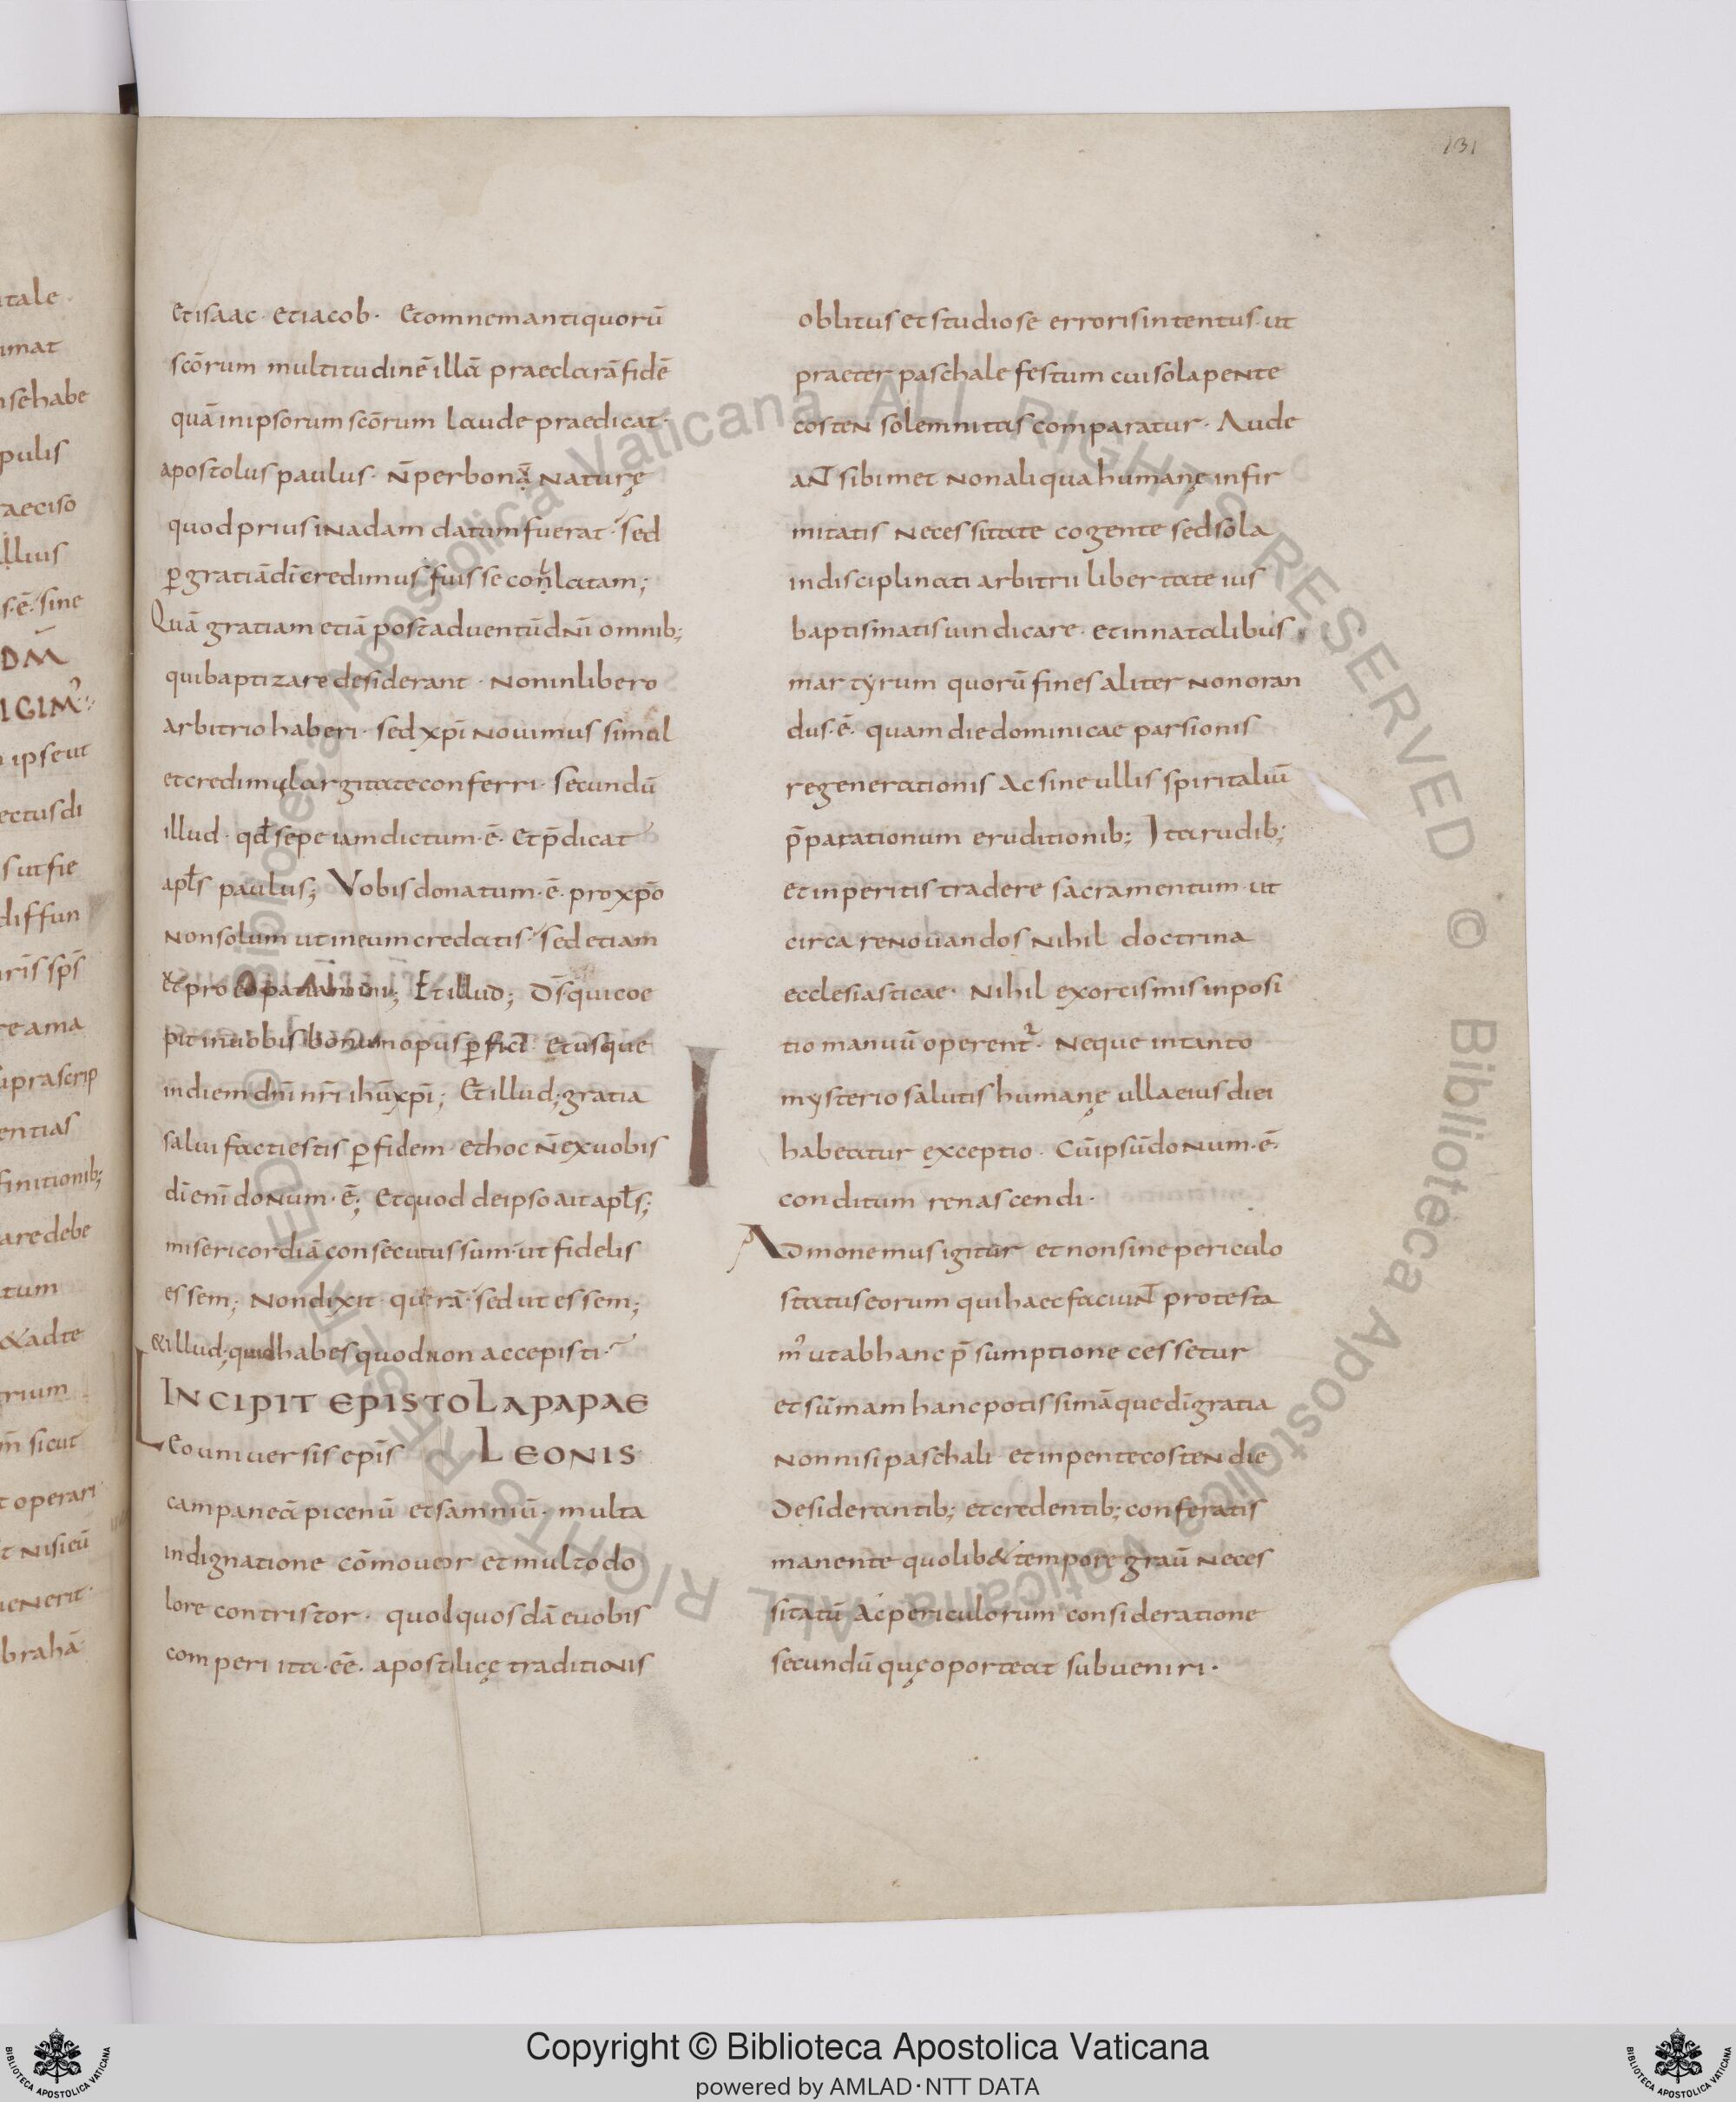 131
et isaac · et iacob · et omnem antiquorū
scōrum multitudinē illā praeclarā fidē
quā in ipsorum scōrum laude praedicat ·
apostolus paulus · n̄ per bonā naturę
quod prius in adam datum fuerat · sed
ꝑ gratiā dī credimus fuisse conlatam;
Quā gratiam etiā post aduentū dnī omnib;
qui baptizare desiderant · non in libero
arbitrio haberi · sed xpī nouimus simul
et credimus largitate conferri · secundū
illud · qđ sepe iam dictum · ē · et p̄dicat
apłs paulus; Vobis donatum · ē · pro xpō
non solum ut in eum credatis · sed etiam
pro patiamini; Et illud; ds̄ qui coe
pit in uobis bonum opus ꝑficit · et usque
in diem dnī nrī ihū xpī; Et illud; gratia
salui facti estis ꝑ fidem · et hoc n̄ ex uobis
dī enī donum · ē; et quod de ipso ait apłs;
misericordiā consecutus sum · ut fidelis
essem; Non dixit querā · sed ut essem;
& illud; quid habes quod non accepisti ·
INCIPIT EPISTOLA PAPAE
LEONIS
Leo uniuersis epīs
campaneā picenū et samniū · multa
indignatione cōmoueor et multo do
lore contristor · quod quosdā e uobis
comperi ita · eē · apostilicę traditionis
oblitus et studiose erroris intentus · ut
praeter paschale festum cui sola pente
costen solemnitas comparatur · Aude
aNT sibimet non aliqua humanę infir
mitatis necessitate cogente sed sola
indisciplinati arbitrii libertate ius
baptismatis uindicare · et in natalibus
martyrum quorū fines aliter nonoran
dus · ē · quam die dominicae parsionis
regenerationis Ac sine ullis spiritaliū
p̄parationum eruditionib; Ita rudib;
et inperitis tradere sacramentum · ut
circa renouandos nihil doctrina
ecclesiasticae · Nihil exorcismis inposi
tio manuū operent᷑ · Neque in tanto
mysterio salutis humanę ulla eius diei
habeatur exceptio · Cū ipsū donum · ē ·
conditum renascendi ·
Admonemus igitur et non sine periculo
status eorum qui haec faciuNT protesta
m᷒ ut ab hanc p̄sumptione cessetur
et sūmam hanc potissimā que dī gratia
non nisi paschali et in pentecosten die
Desiderantib; et credentib; conferatis
manente quolib& tempore grauī neces
sitatū Ac periculorum consideratione
secundū quę oporteat subueniri ·
Copyright © Biblioteca Apostolica Vaticana
powered by AMLAD·NTT DATA